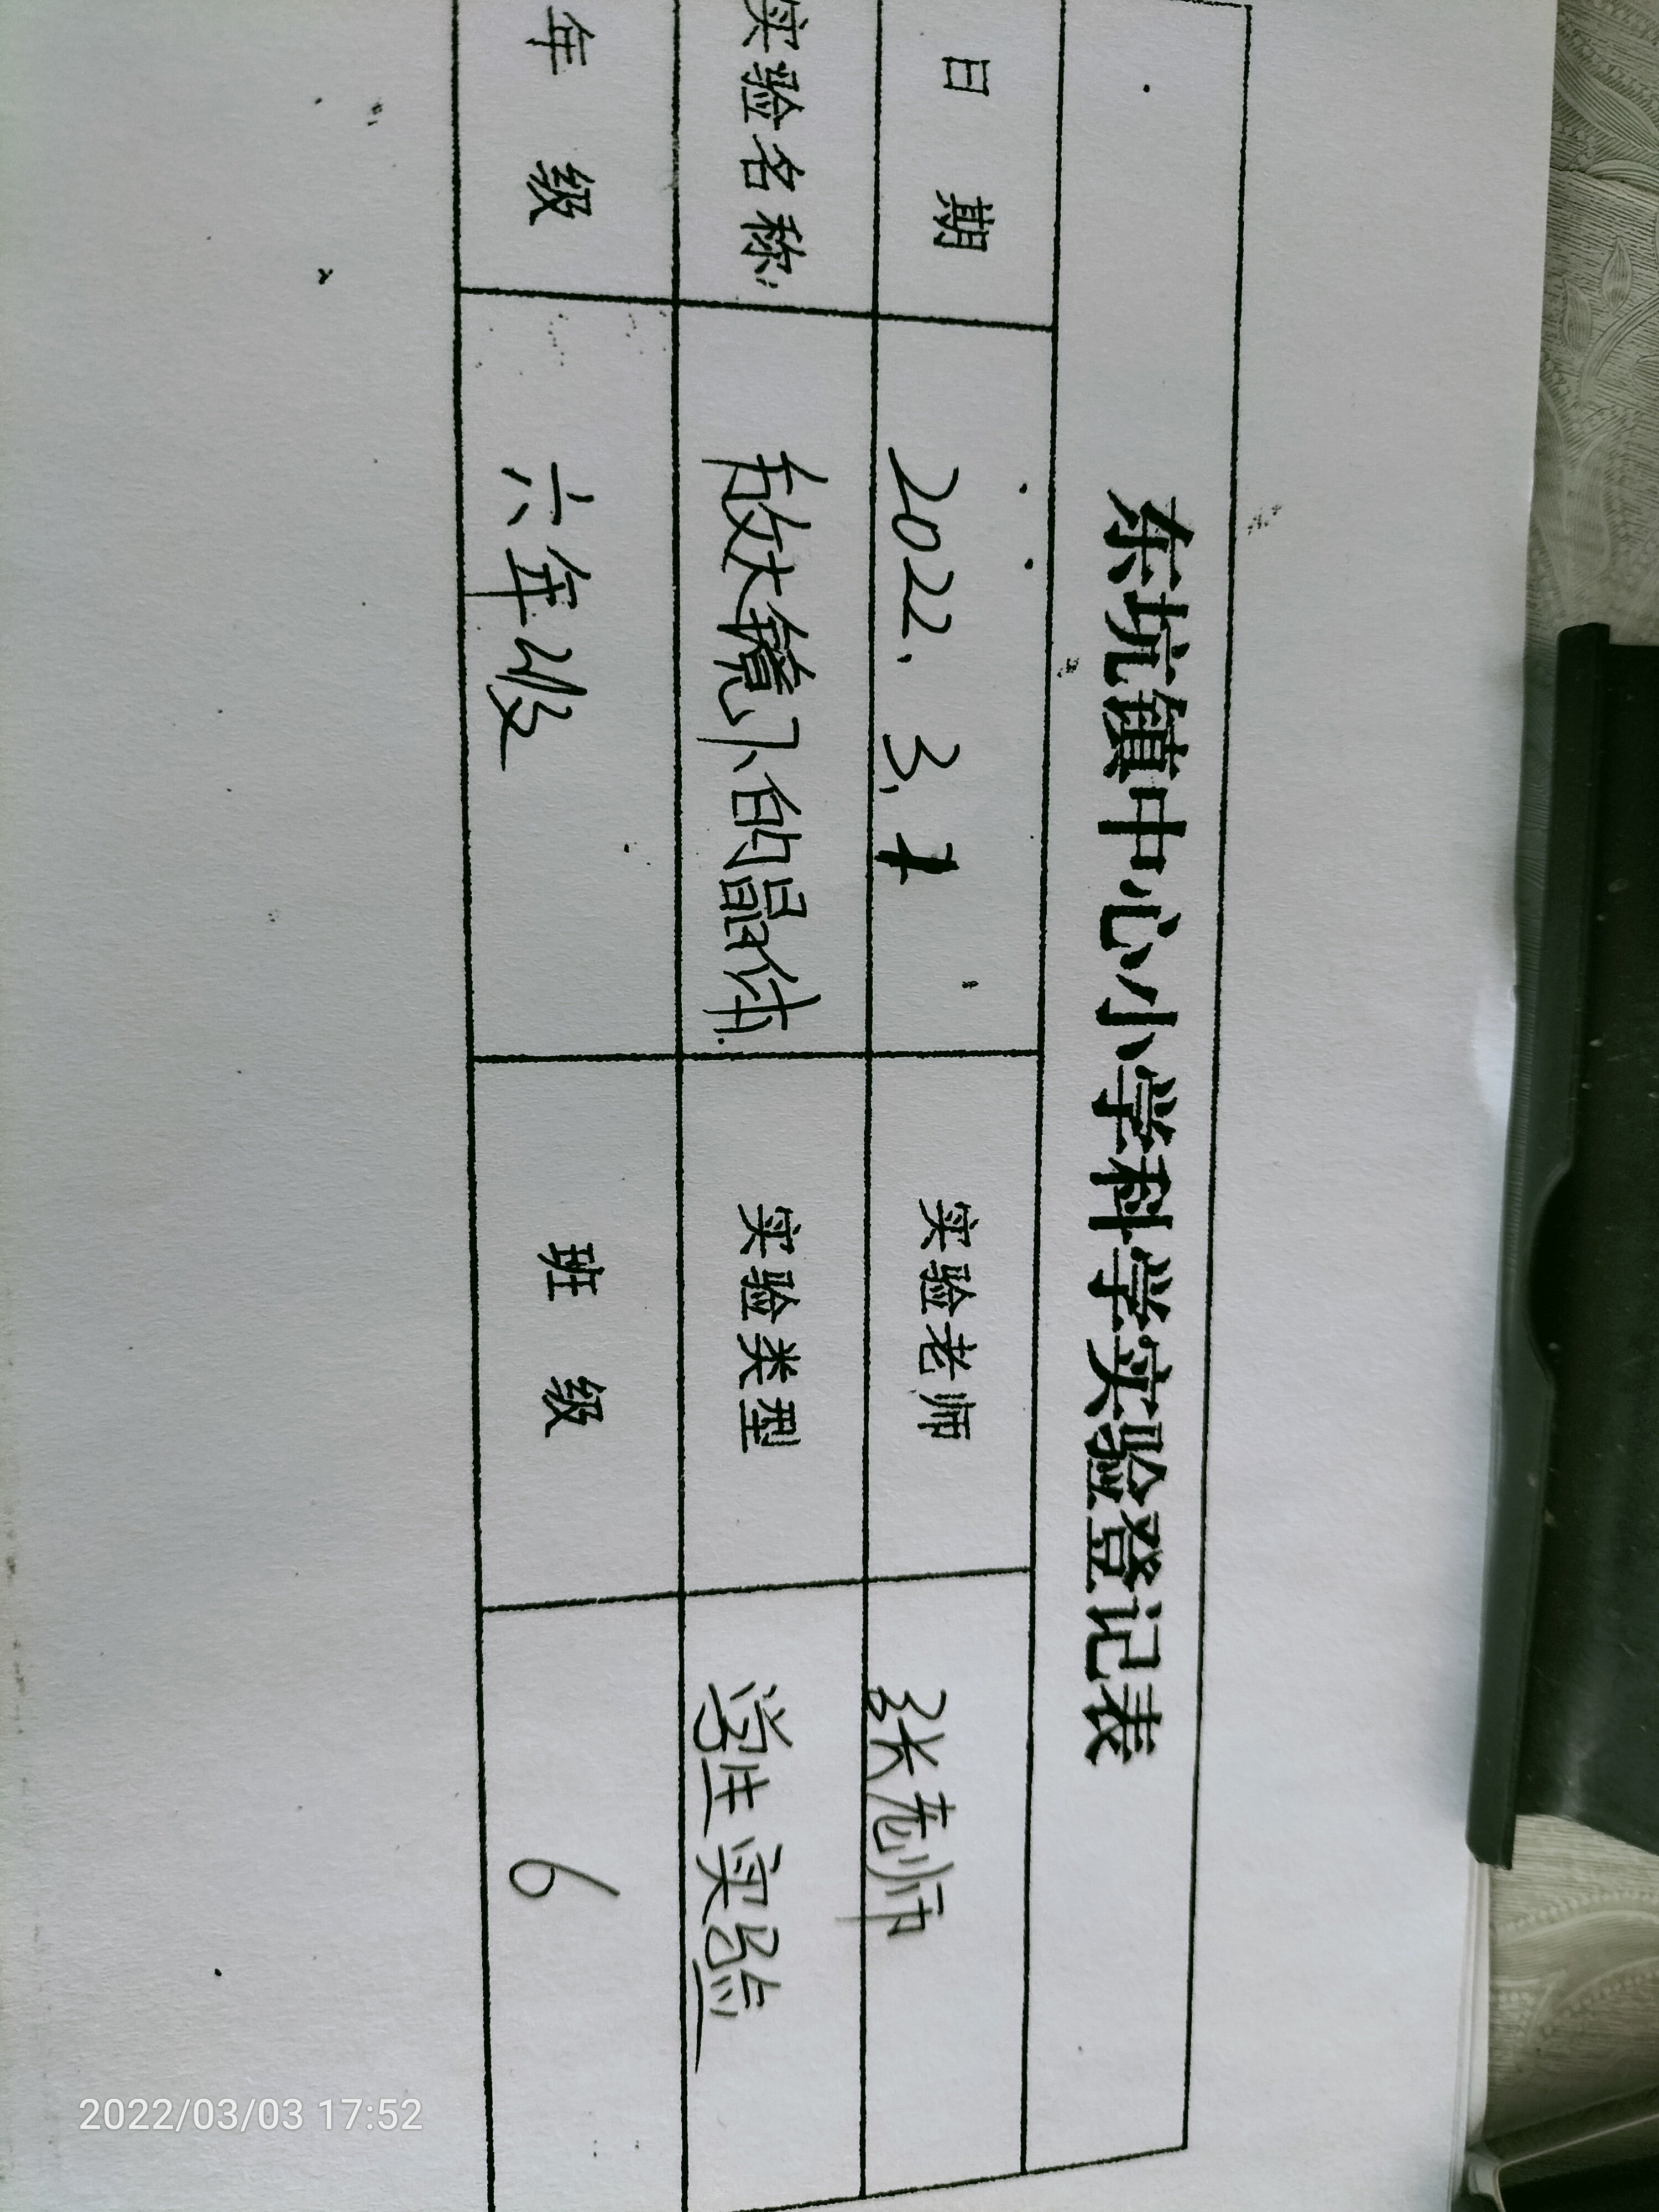 东坑镇中心小学科学实验登记表
日 期 2022.3. 实验老师 张老师
实验名称 放大镜下的晶体. 实验类型 学生实验
年 级 六年级 班 级 6
2022/03/03 17:52